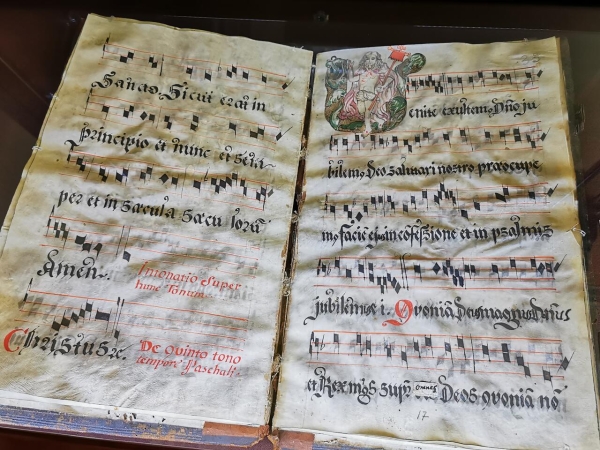 Sancto, Sicut erat in
principio et nunc et sem
per et in sæcula sæculorũ
Amen.
Intonatio super
hunc Tonum.
Christus re.
De quinto tono
tempore Paschali.
enite exultemꝰ Dño ju
bilemꝰ Deo salutari nostro præocupe
mꝰ facie ejꝰ in cofessione et in psalmis
jubilemꝰ ei. Qvoniã Deus magnus Dñus
et Rex mgs sup omnes Deos qvoniã no
17